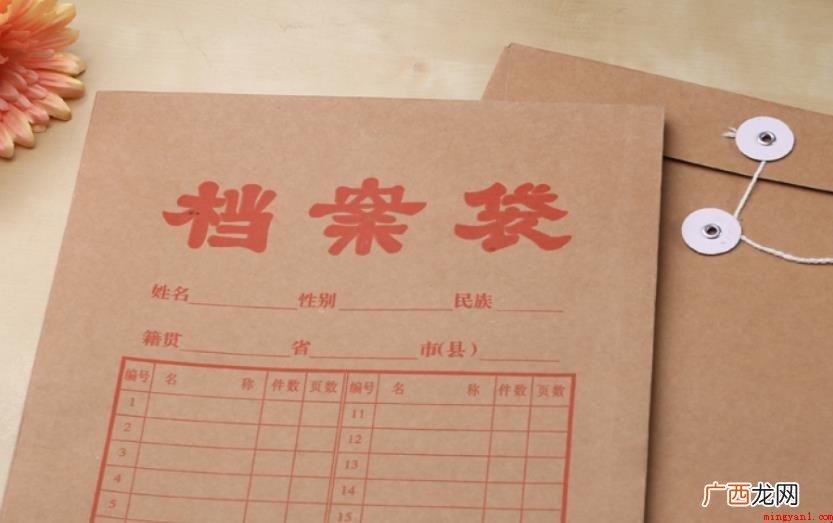 档案袋
姓名 性别 民族
籍贯 省 市(县)
编号 名 称 件数 页数 编号 名 称 件数 页数
1 11
2 12
3 13
4 14
5 15
广西龙网
mingyan1.com